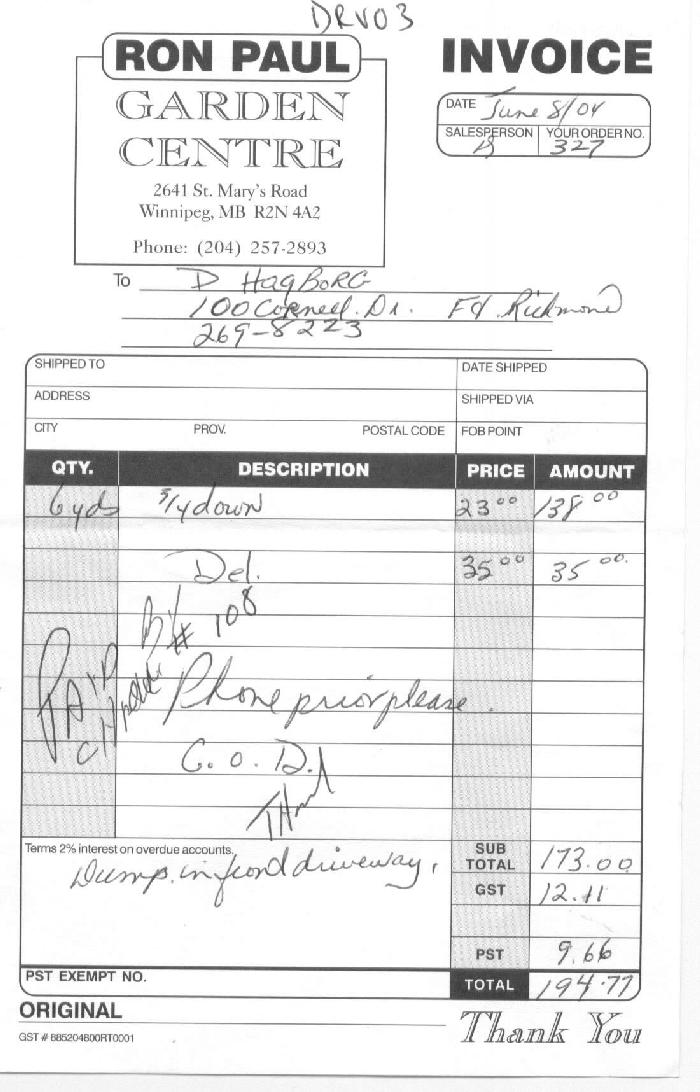 DRV03
RON PAUL
GARDEN
CENTRE
2641 St. Mary's Road
Winnipeg, MB R2N 4A2
Phone: (204) 257-2893
INVOICE
DATE June 8/04
SALESPERSON YOUR ORDER NO.
B 327
To D HagBorg
100 Cornell Dr. Ft. Richmond
269-8223
SHIPPED TO DATE SHIPPED
ADDRESS SHIPPED VIA
CITY PROV. POSTAL CODE FOB POINT
QTY. DESCRIPTION PRICE AMOUNT
6 yds 3/4 down 23 00 138 00
Del. 35 00 35 00.
PAID By
# 108
Phone prior please.
C.O.D.
Terms 2% interest on overdue accounts.
Dump in front driveway.
SUB TOTAL 173.00
GST 12.11
PST 9.66
PST EXEMPT NO.
TOTAL 194.77
ORIGINAL
GST # 885204800RT0001
Thank You